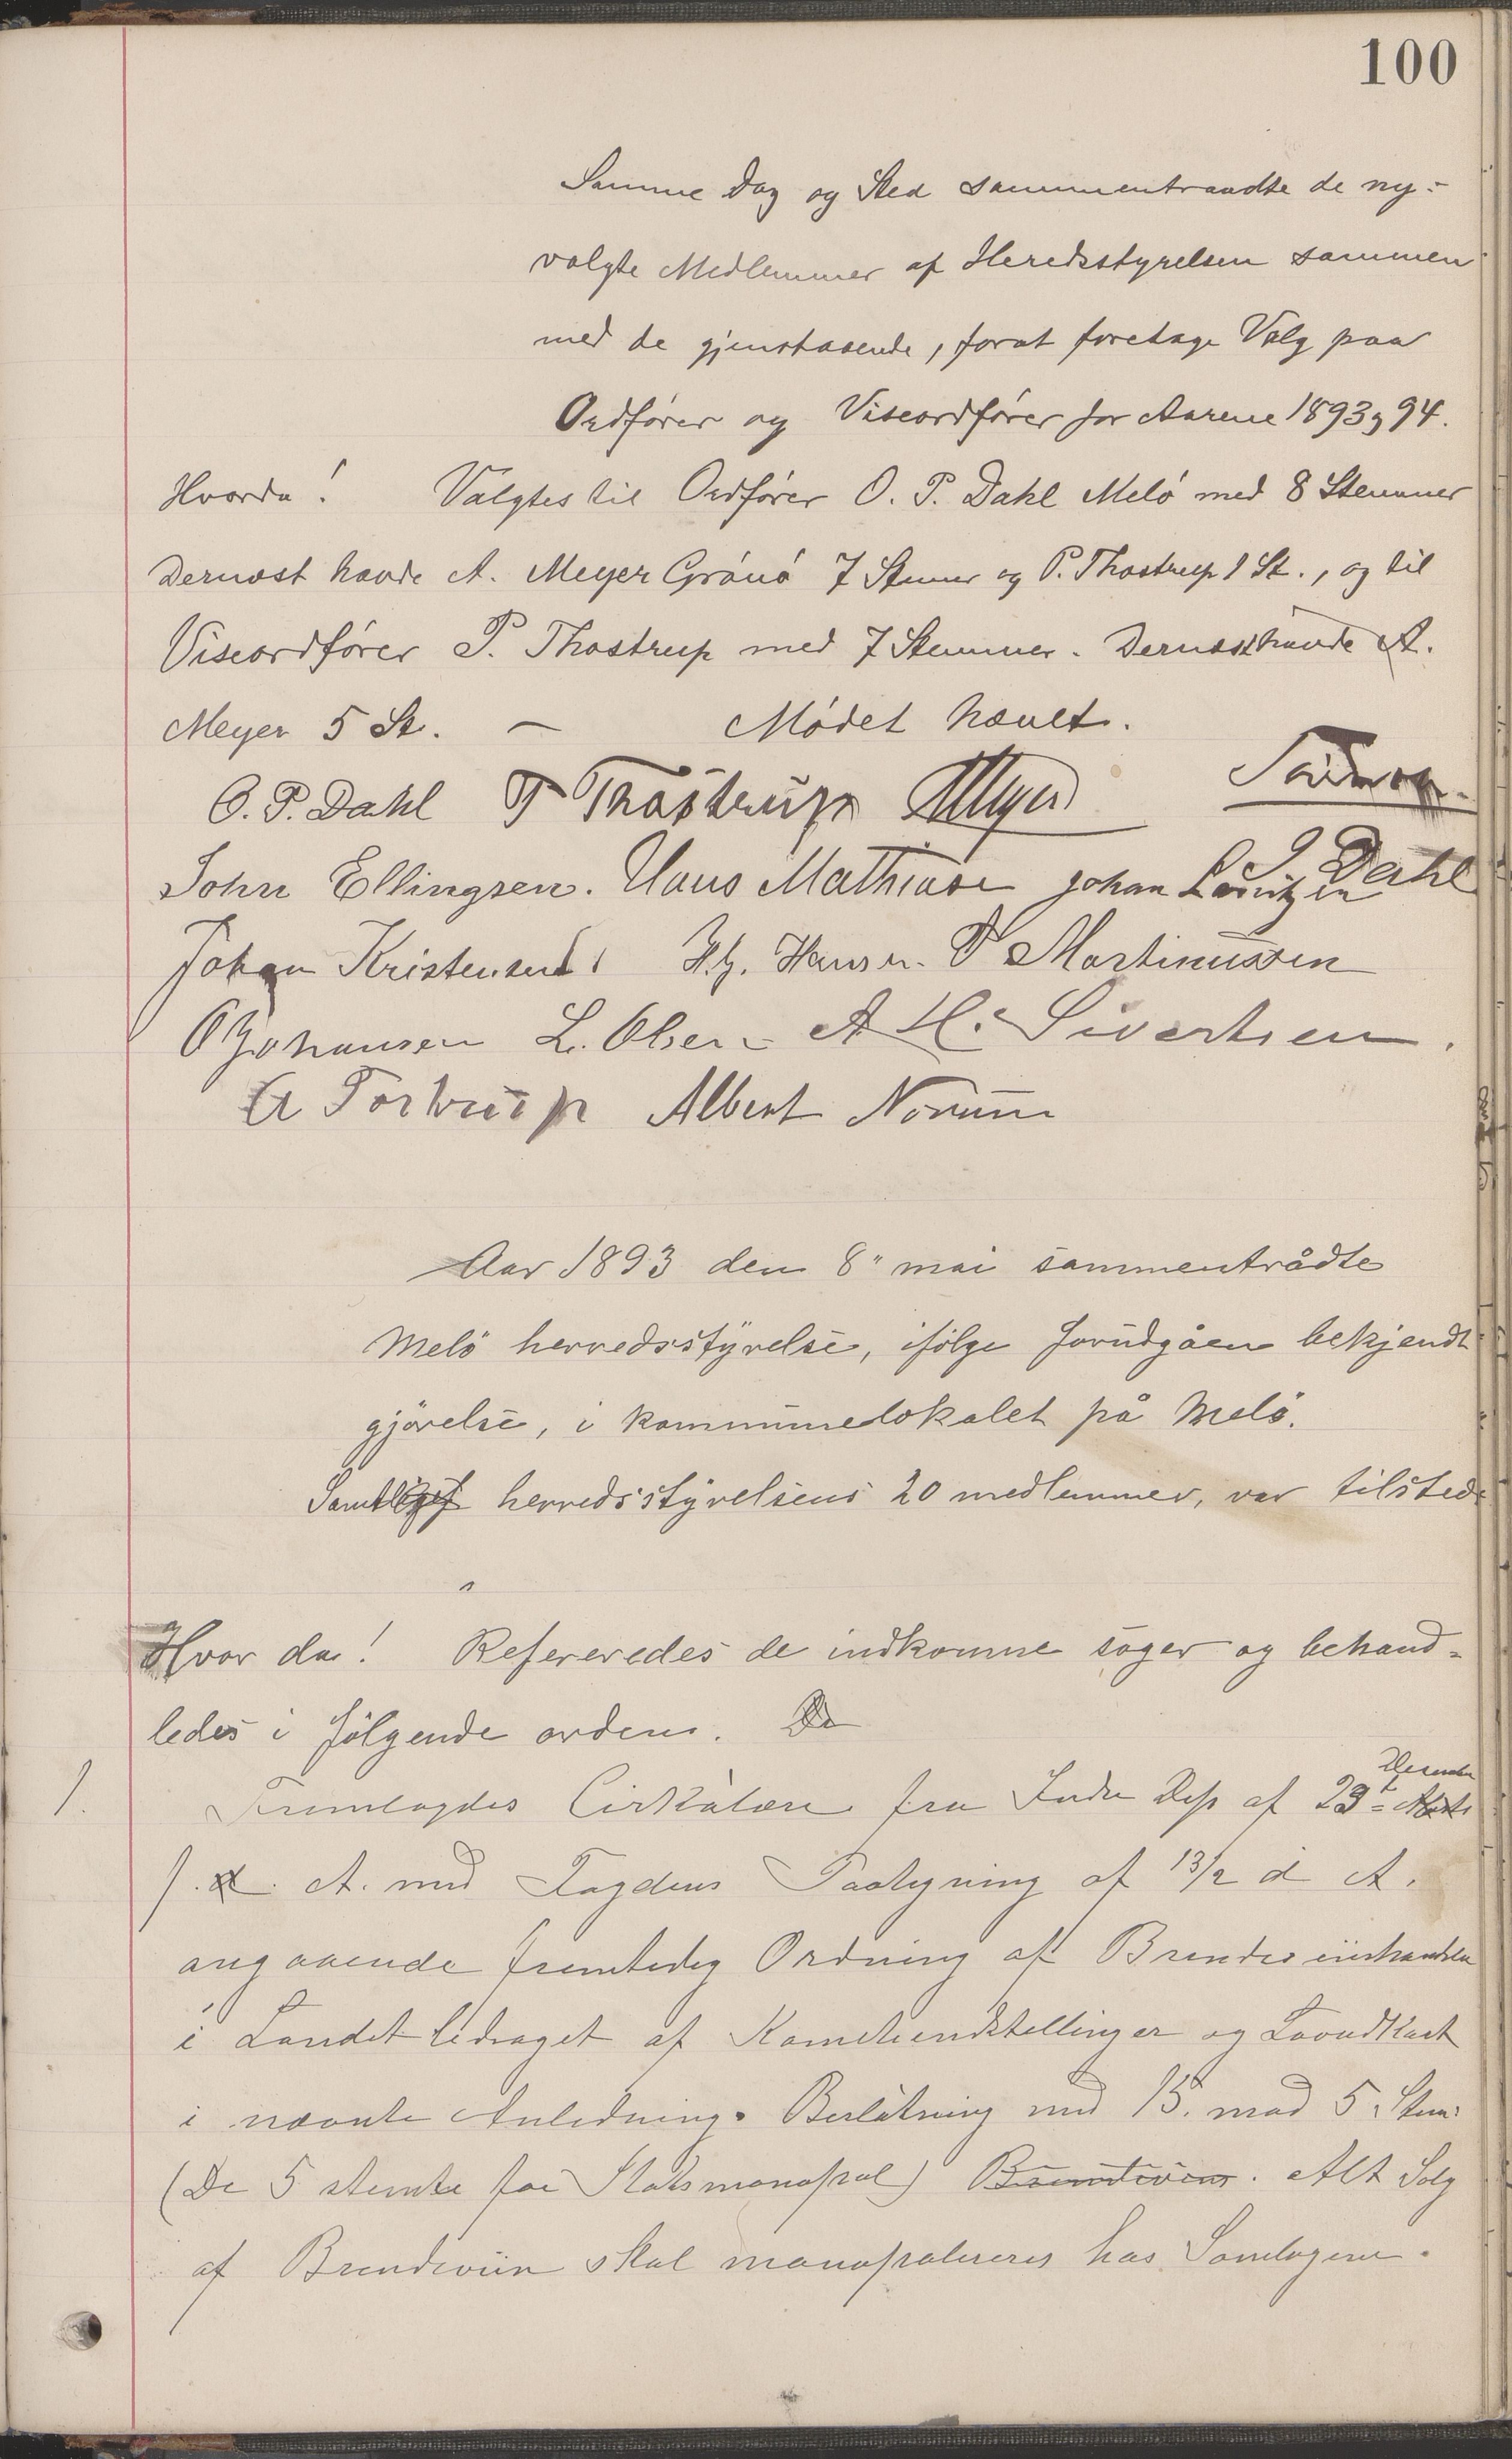 100
Samme Dag og Sted sammentraadte de ny-
valgte Medlemmer af Heredsstyrelsen sammen
med de gjenstaaende, forat foretage Valg paa
Ordfører og Viseordfører for Aarene 1893 og 94.
Hvorda! Valgtes til Ordfører O. P. Dahl Melø med 8 Stemmer
Dernæst havde A. Meyer Grønø 7 Stemer og P. Thostrup 1 St., og til
Viseordfører P. Thostrup med 7 Stemmer. Dernæst havde A.
Meyer 5 St. — Mødet hævet.
O. P. Dahl P Thostrup AMeyer
John Ellingsen. Hans Mathiase Johan Lauritzen J Dahl
Johan Kristensen H. J. Hansen. P Martinussen
O Johansen L. Olsen A H. Sivertsen.
A Tostrup Albert Novum
Aar 1893 den 8" mai sammentrådte
Melö herredsstyrelse, ifölge forudgåen bekjendt
gjörelse, i kommunelokalet på Melö.
Samtlige herredsstyrelsens 20 medlemmer, var tilstede
Hvor da! Refereredes de indkomne sager og behand-
ledes i fölgende orden. De
1. Fremlagdes Cirkulære fra Indre Dep af 23 Desember Marts
f. d. A. med Fogdens Paategning af 13/2 d A.
angaaende fremtidig Ordning af Brendeviinshandelen
i Landet ledsaget af Komiteindstellinger og Lovudkast
i nævnte Anledning. Beslutning med 15. mod 5 Stem:
(De 5 stemte for Statsmonopol) Brendeviins. Alt Salg
af Brendeviin skal monopoliseres hos Samlagene.